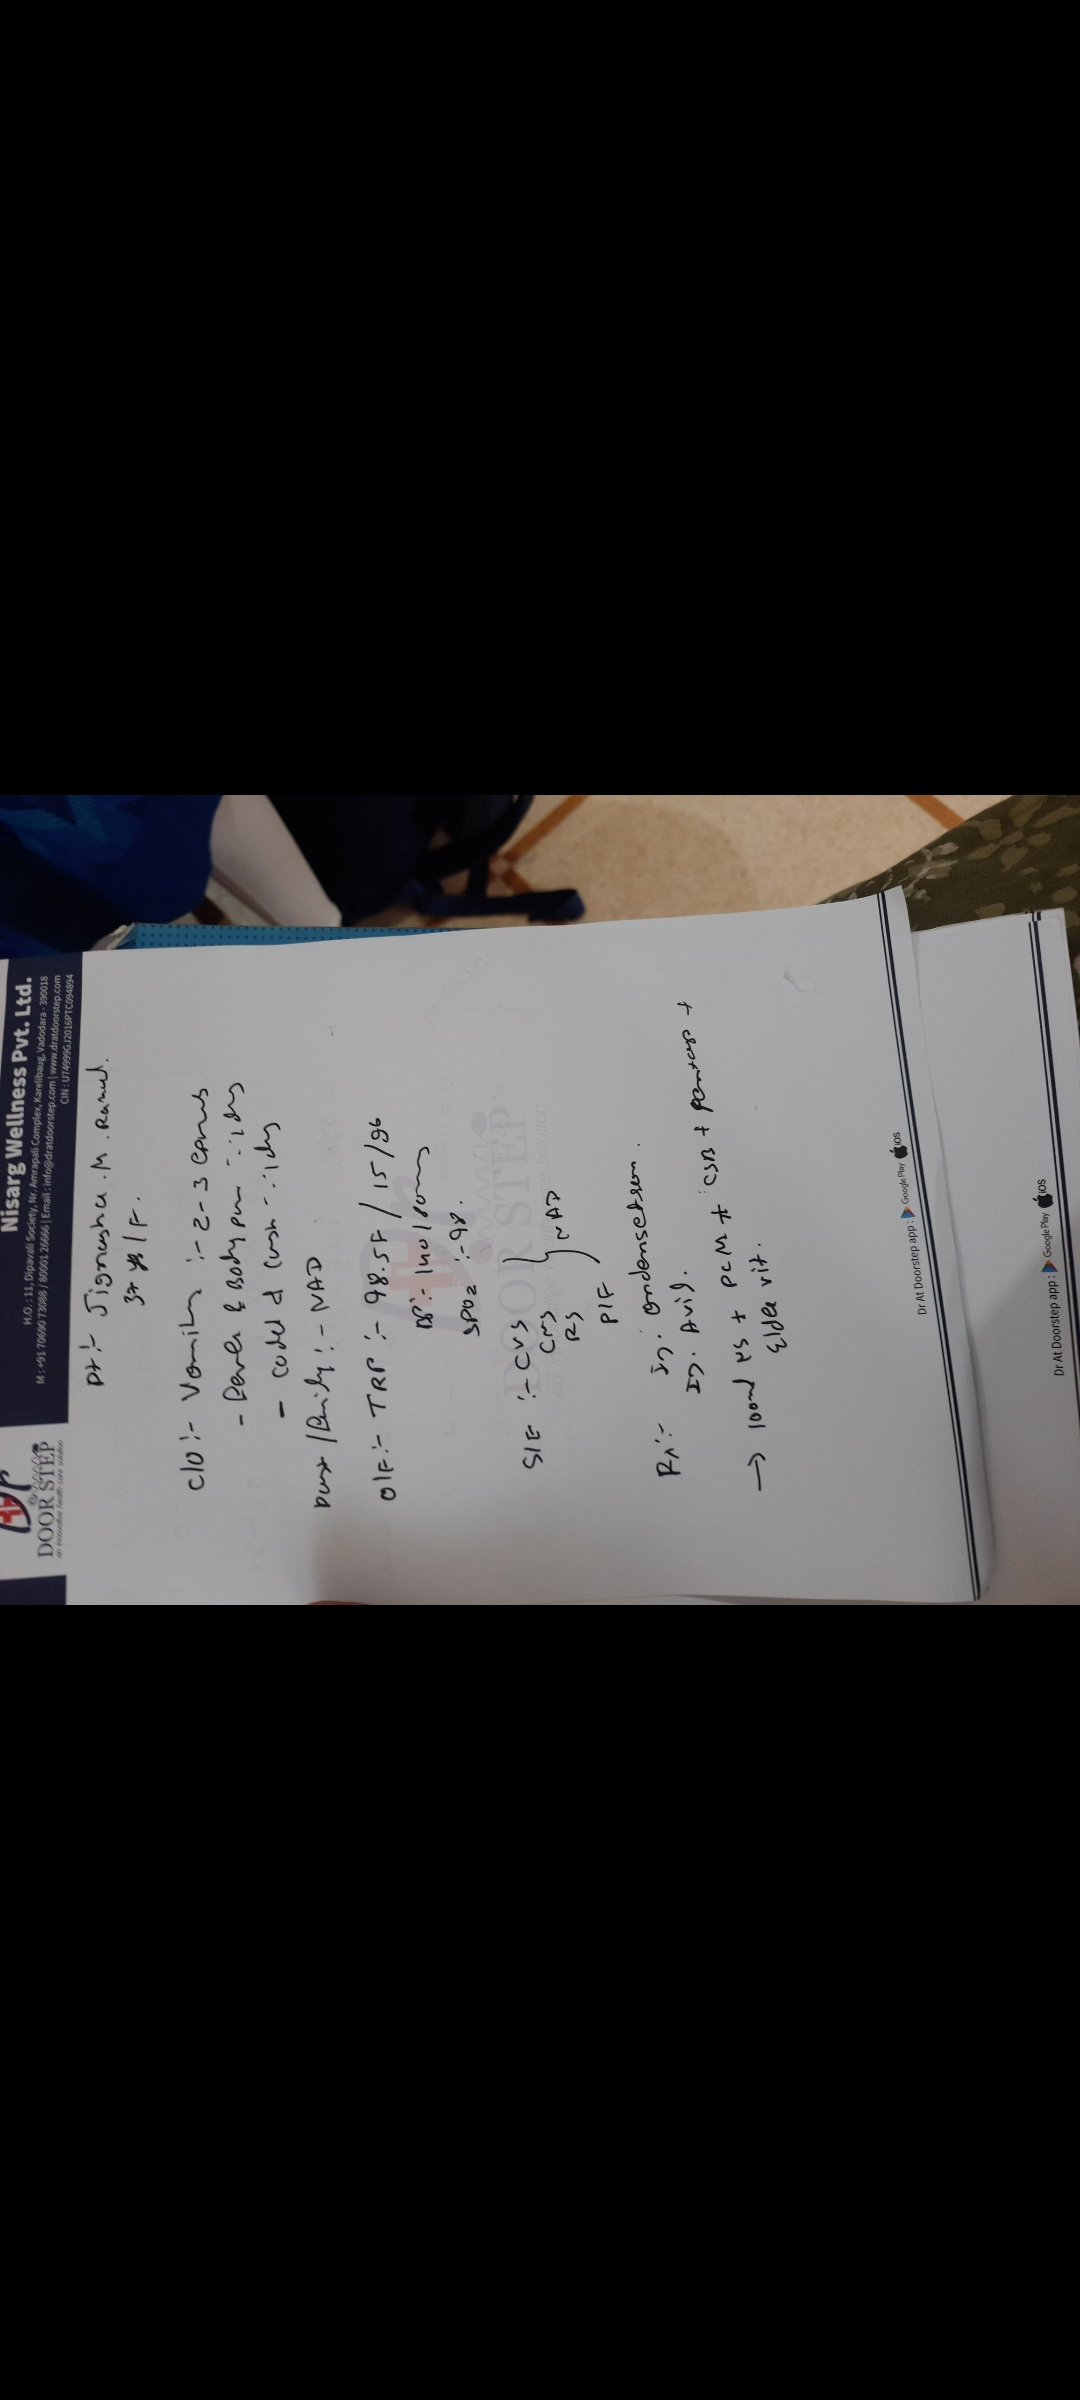 Nisarg Wellness Pvt. Ltd.
H.O.: 11, Dipavali Society, Nr. Amrapali Complex, Karelibaug, Vadodara - 390018
M : +91 70690 73088 / 80001 26666 | Email : info@dratdoorstep.com | www.dratdoorstep.com
CIN : U74999GJ2016PTC094894
DOOR STEP
Pt:- Jignasha . M .
37 /F.
C/O :- Vomiting :- 2-3
- Fever & Body pain :- 1 day
- cold & cough :- 1 day
Past / Family :- NAD
O/E :- TRP :- 98.5F / 15 / 96
BP :- 140/80
SPO2 :- 98.
S/E :- CVS
CNS
RS
NAD
P/F
Rx :- Inj. ondensetrom.
Inj. Avil.
→ 100ml NS + PCM + + +
Elder vit.
DOOR STEP
Dr At Doorstep app : Google Play iOS
Dr At Doorstep app : Google Play iOS